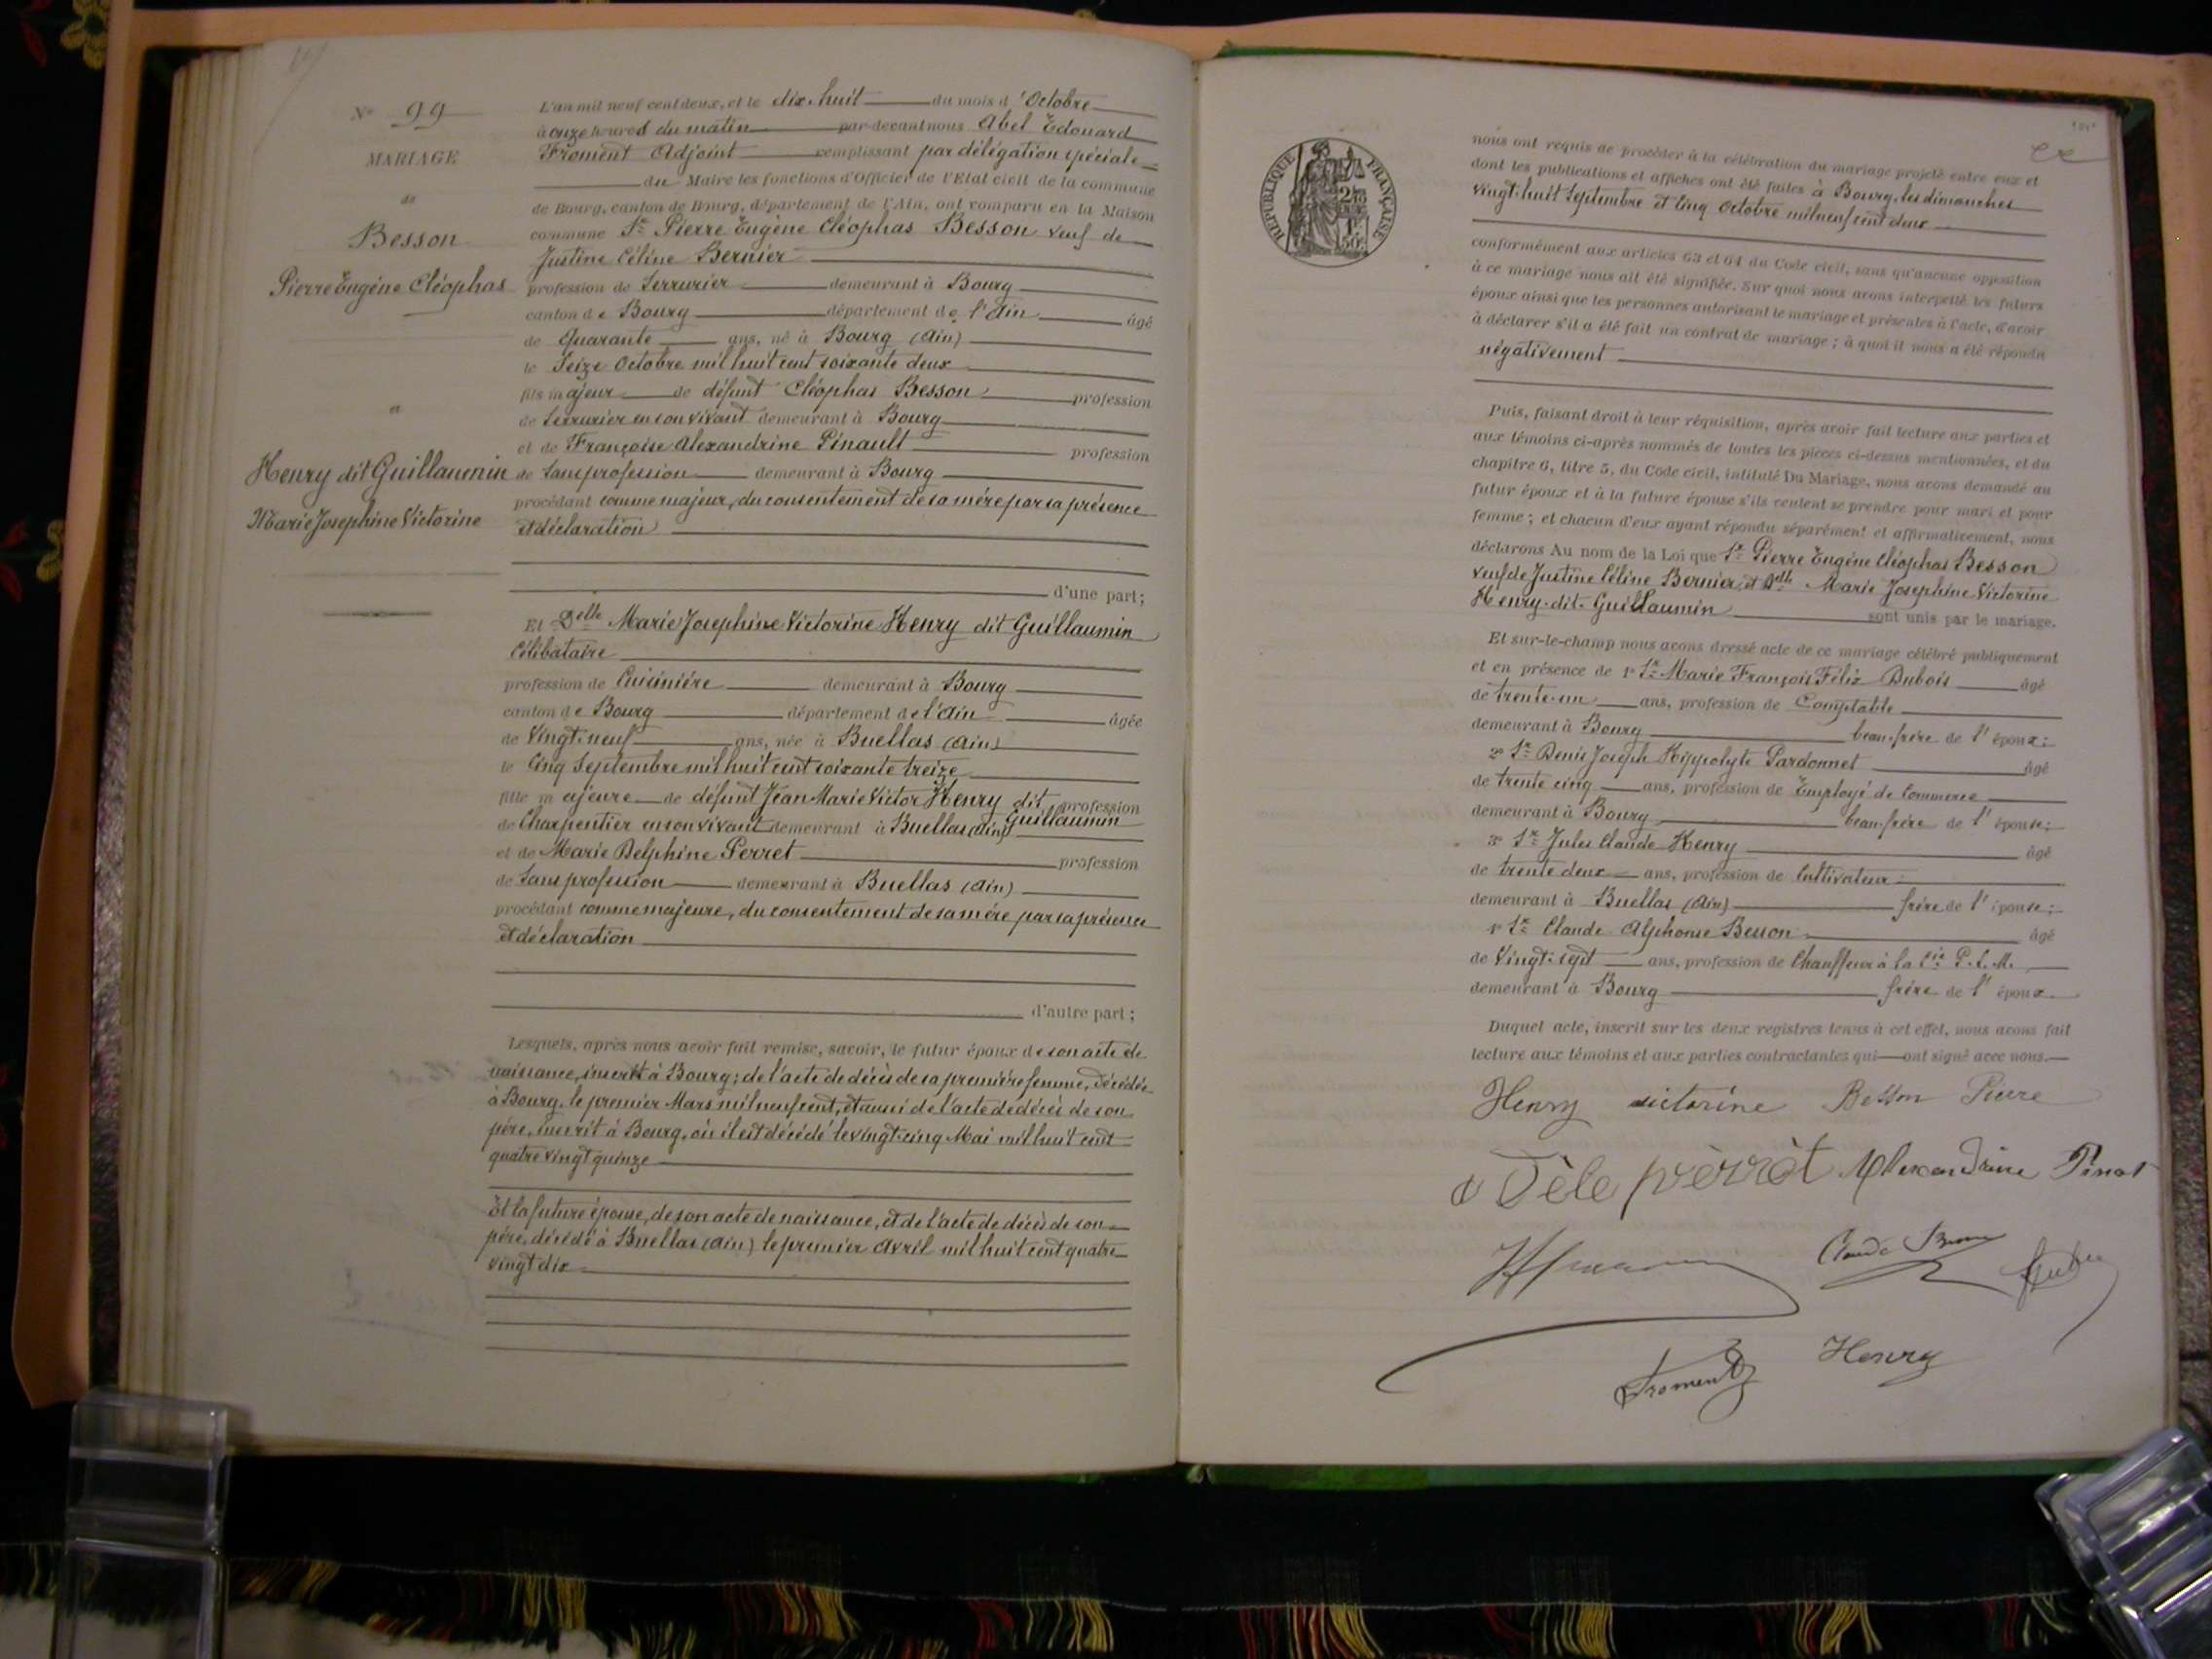 Nº 99
MARIAGE
de
Besson
Pierre Eugène Cléophas
et
Henry dit Guillaumin
Marie Josephine Victorine
L'an mil neuf cent deux, et le dix-huit du mois d'Octobre
à onze heures du matin par-devant nous Abel Edouard
Froment Adjoint remplissant par délégation spéciale
du Maire les fonctions d'Officier de l'Etat civil de la commune
de Bourg, canton de Bourg, département de l'Ain, ont comparu en la Maison
commune Sr Pierre Eugène Cléophas Besson veuf de
Justine Céline Bernier
profession de Serrurier demeurant à Bourg
canton de Bourg département de l'Ain âgé
de Quarante ans, né à Bourg (Ain)
le Seize Octobre mil huit cent soixante deux
fils majeur de défunt Cléophas Besson profession
de Serrurier en son vivant demeurant à Bourg
et de Françoise Alexandrine Pinault profession
de sans profession demeurant à Bourg
procédant comme majeur, du consentement de sa mère par sa présence
et déclaration
d'une part;
Et Delle Marie Josephine Victorine Henry dit Guillaumin
Célibataire
profession de Cuisinière demeurant à Bourg
canton de Bourg département de l'Ain âgée
de Vingt-neuf ans, née à Buellas (Ain)
le Cinq Septembre mil huit cent soixante treize
fille majeure de défunt Jean Marie Victor Henry dit profession
Guillaumin
de Charpentier en son vivant demeurant à Buellas (Ain)
et de Marie Delphine Perret profession
de sans profession demeurant à Buellas (Ain)
procédant comme majeure, du consentement de sa mère par sa présence
et déclaration
d'autre part;
Lesquels, après nous avoir fait remise, savoir, le futur époux de son acte de
naissance, inscrit à Bourg; de l'acte de décès de sa première femme, décédée
à Bourg, le premier Mars mil neuf cent, et aussi de l'acte de décès de son
père, inscrit à Bourg, où il est décédé le vingt-cinq Mai mil huit cent
quatre vingt quinze
Et la future épouse, de son acte de naissance, et de l'acte de décès de son
père, décédé à Buellas (Ain) le premier Avril mil huit cent quatre
vingt dix
RÉPUBLIQUE FRANÇAISE
nous ont requis de procéder à la célébration du mariage projeté entre eux et
dont les publications et affiches ont été faites à Bourg, les dimanches
vingt-huit Septembre et cinq Octobre mil neuf cent deux
conformément aux articles 63 et 64 du Code civil, sans qu'aucune opposition
à ce mariage nous ait été signifiée. Sur quoi nous avons interpellé les futurs
époux ainsi que les personnes autorisant le mariage et présentes à l'acte, d'avoir
à déclarer s'il a été fait un contrat de mariage; à quoi il nous a été répondu
négativement
Puis, faisant droit à leur réquisition, après avoir fait lecture aux parties et
aux témoins ci-après nommés de toutes les pièces ci-dessus mentionnées, et du
chapitre 6, titre 5, du Code civil, intitulé Du Mariage, nous avons demandé au
futur époux et à la future épouse s'ils veulent se prendre pour mari et pour
femme; et chacun d'eux ayant répondu séparément et affirmativement, nous
déclarons Au nom de la Loi que Sr Pierre Eugène Cléophas Besson
veuf de Justine Céline Bernier, et Delle Marie Josephine Victorine
Henry-dit-Guillaumin sont unis par le mariage.
Et sur-le-champ nous avons dressé acte de ce mariage célébré publiquement
et en présence de 1º Sr Marie François Félix Dubois âgé
de trente-un ans, profession de Comptable
demeurant à Bourg beau-frère de l'époux;
2º Sr Denis Joseph Hippolyte Pardonnet âgé
de trente cinq ans, profession de Employé de Commerce
demeurant à Bourg beau-frère de l'épouse;
3º Sr Jules Claude Henry âgé
de trente deux ans, profession de Cultivateur
demeurant à Buellas (Ain) frère de l'épouse;
4º Sr Claude Alphonse Besson âgé
de Vingt-sept ans, profession de Chauffeur à la Cie P.L.M.
demeurant à Bourg frère de l'époux
Duquel acte, inscrit sur les deux registres tenus à cet effet, nous avons fait
lecture aux témoins et aux parties contractantes qui ont signé avec nous.
Henry victorine Besson Pierre
Dèle pèrrèt Alexandrine Pinot
Claude Besson
Froment Henry